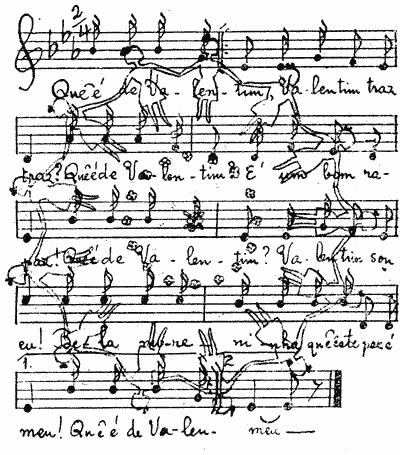 2/4
Quêê de Va-len-tim, Valentim traz
traz! Quêêde Va-len-tim? É um bom ra-
paz! Quêêde Va-len-tim? Valentim sou
eu! Be-la mo-re ni nha quêêste par é
1. 2.
meu! Quêê de Va-len- meu